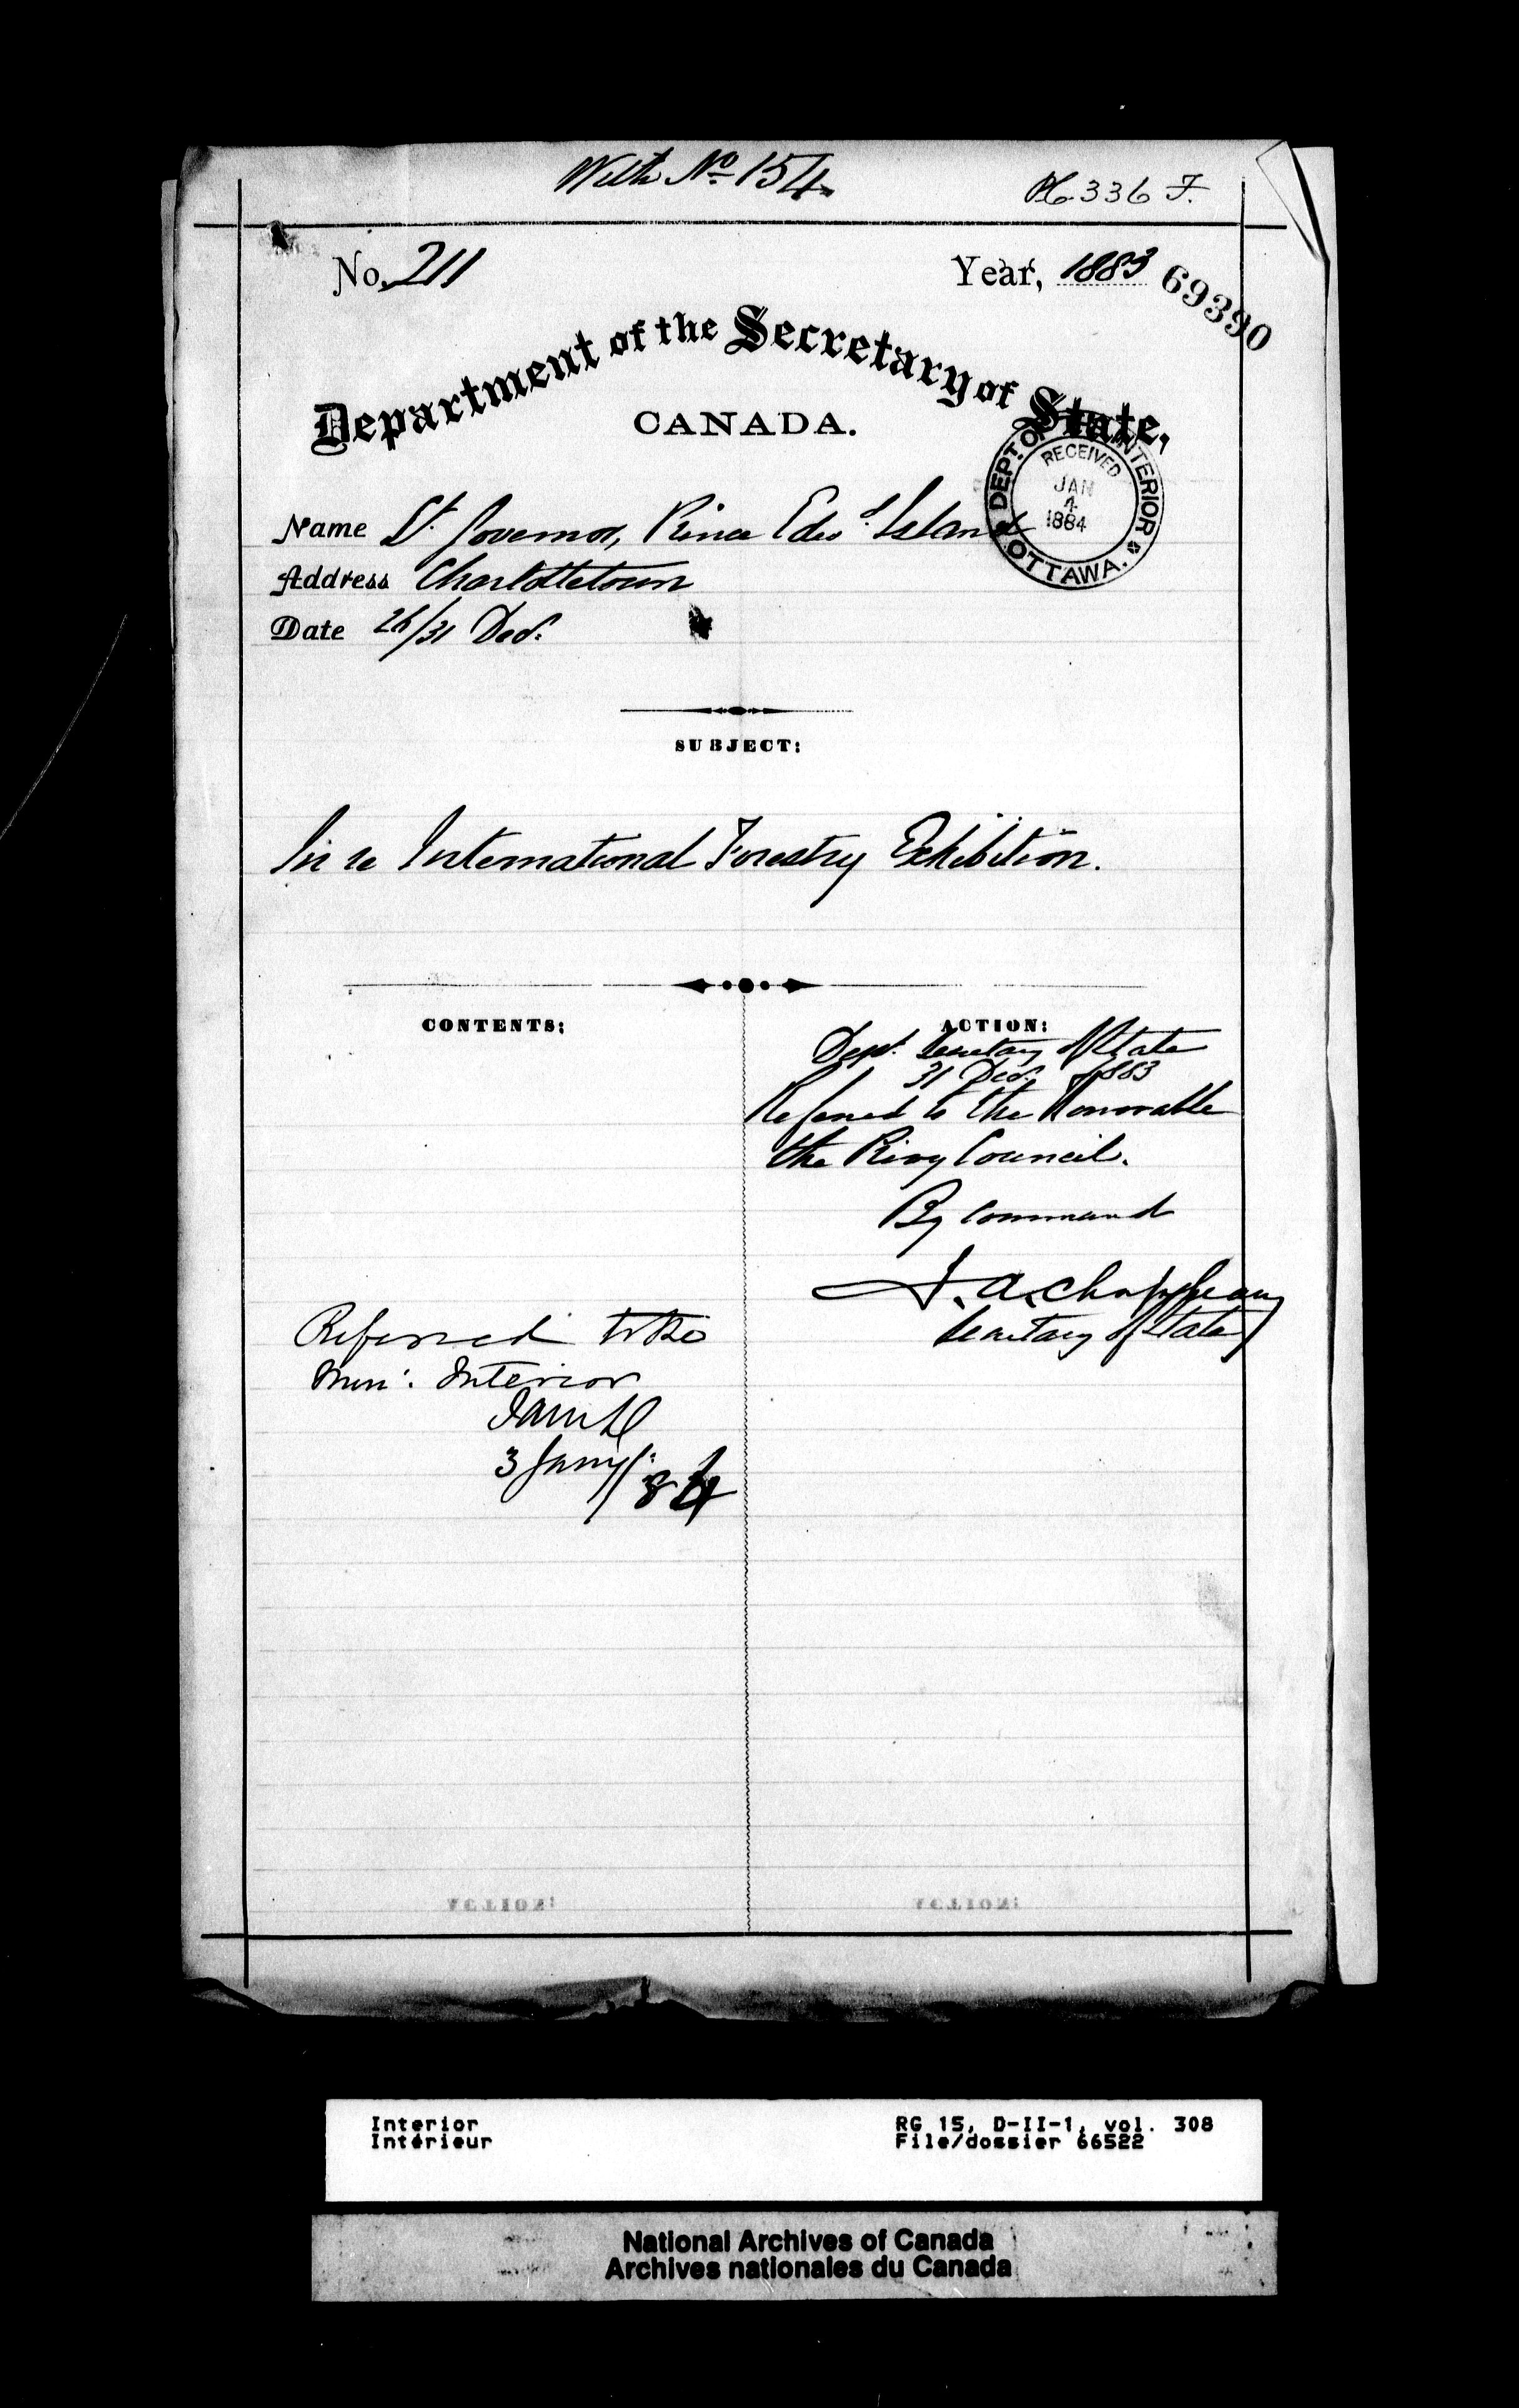 With No 154
336 F.
No. 211
Year, 1883
69390
Department of the Secretary of State,
CANADA.
DEPT. OF INTERIOR
RECEIVED
JAN
4
1884
OTTAWA.
Name Lt. Governor, Prince Edwd Island
Address Charlottetown
Date 26/31 Dec.
SUBJECT:
In re International Forestry Exhibition.
CONTENTS:
ACTION:
Dept. Secretary of State
31 Dec. 1883
Referred to the Honorable
the Privy Council.
By Command
J. A. Chapleau
Secretary of State
Referred to the
Min: Interior
3 Jany/84
ACTION:
ACTION:
Interior
Intérieur
RG 15, D-II-1, vol. 308
File/dossier 66522
National Archives of Canada
Archives nationales du Canada